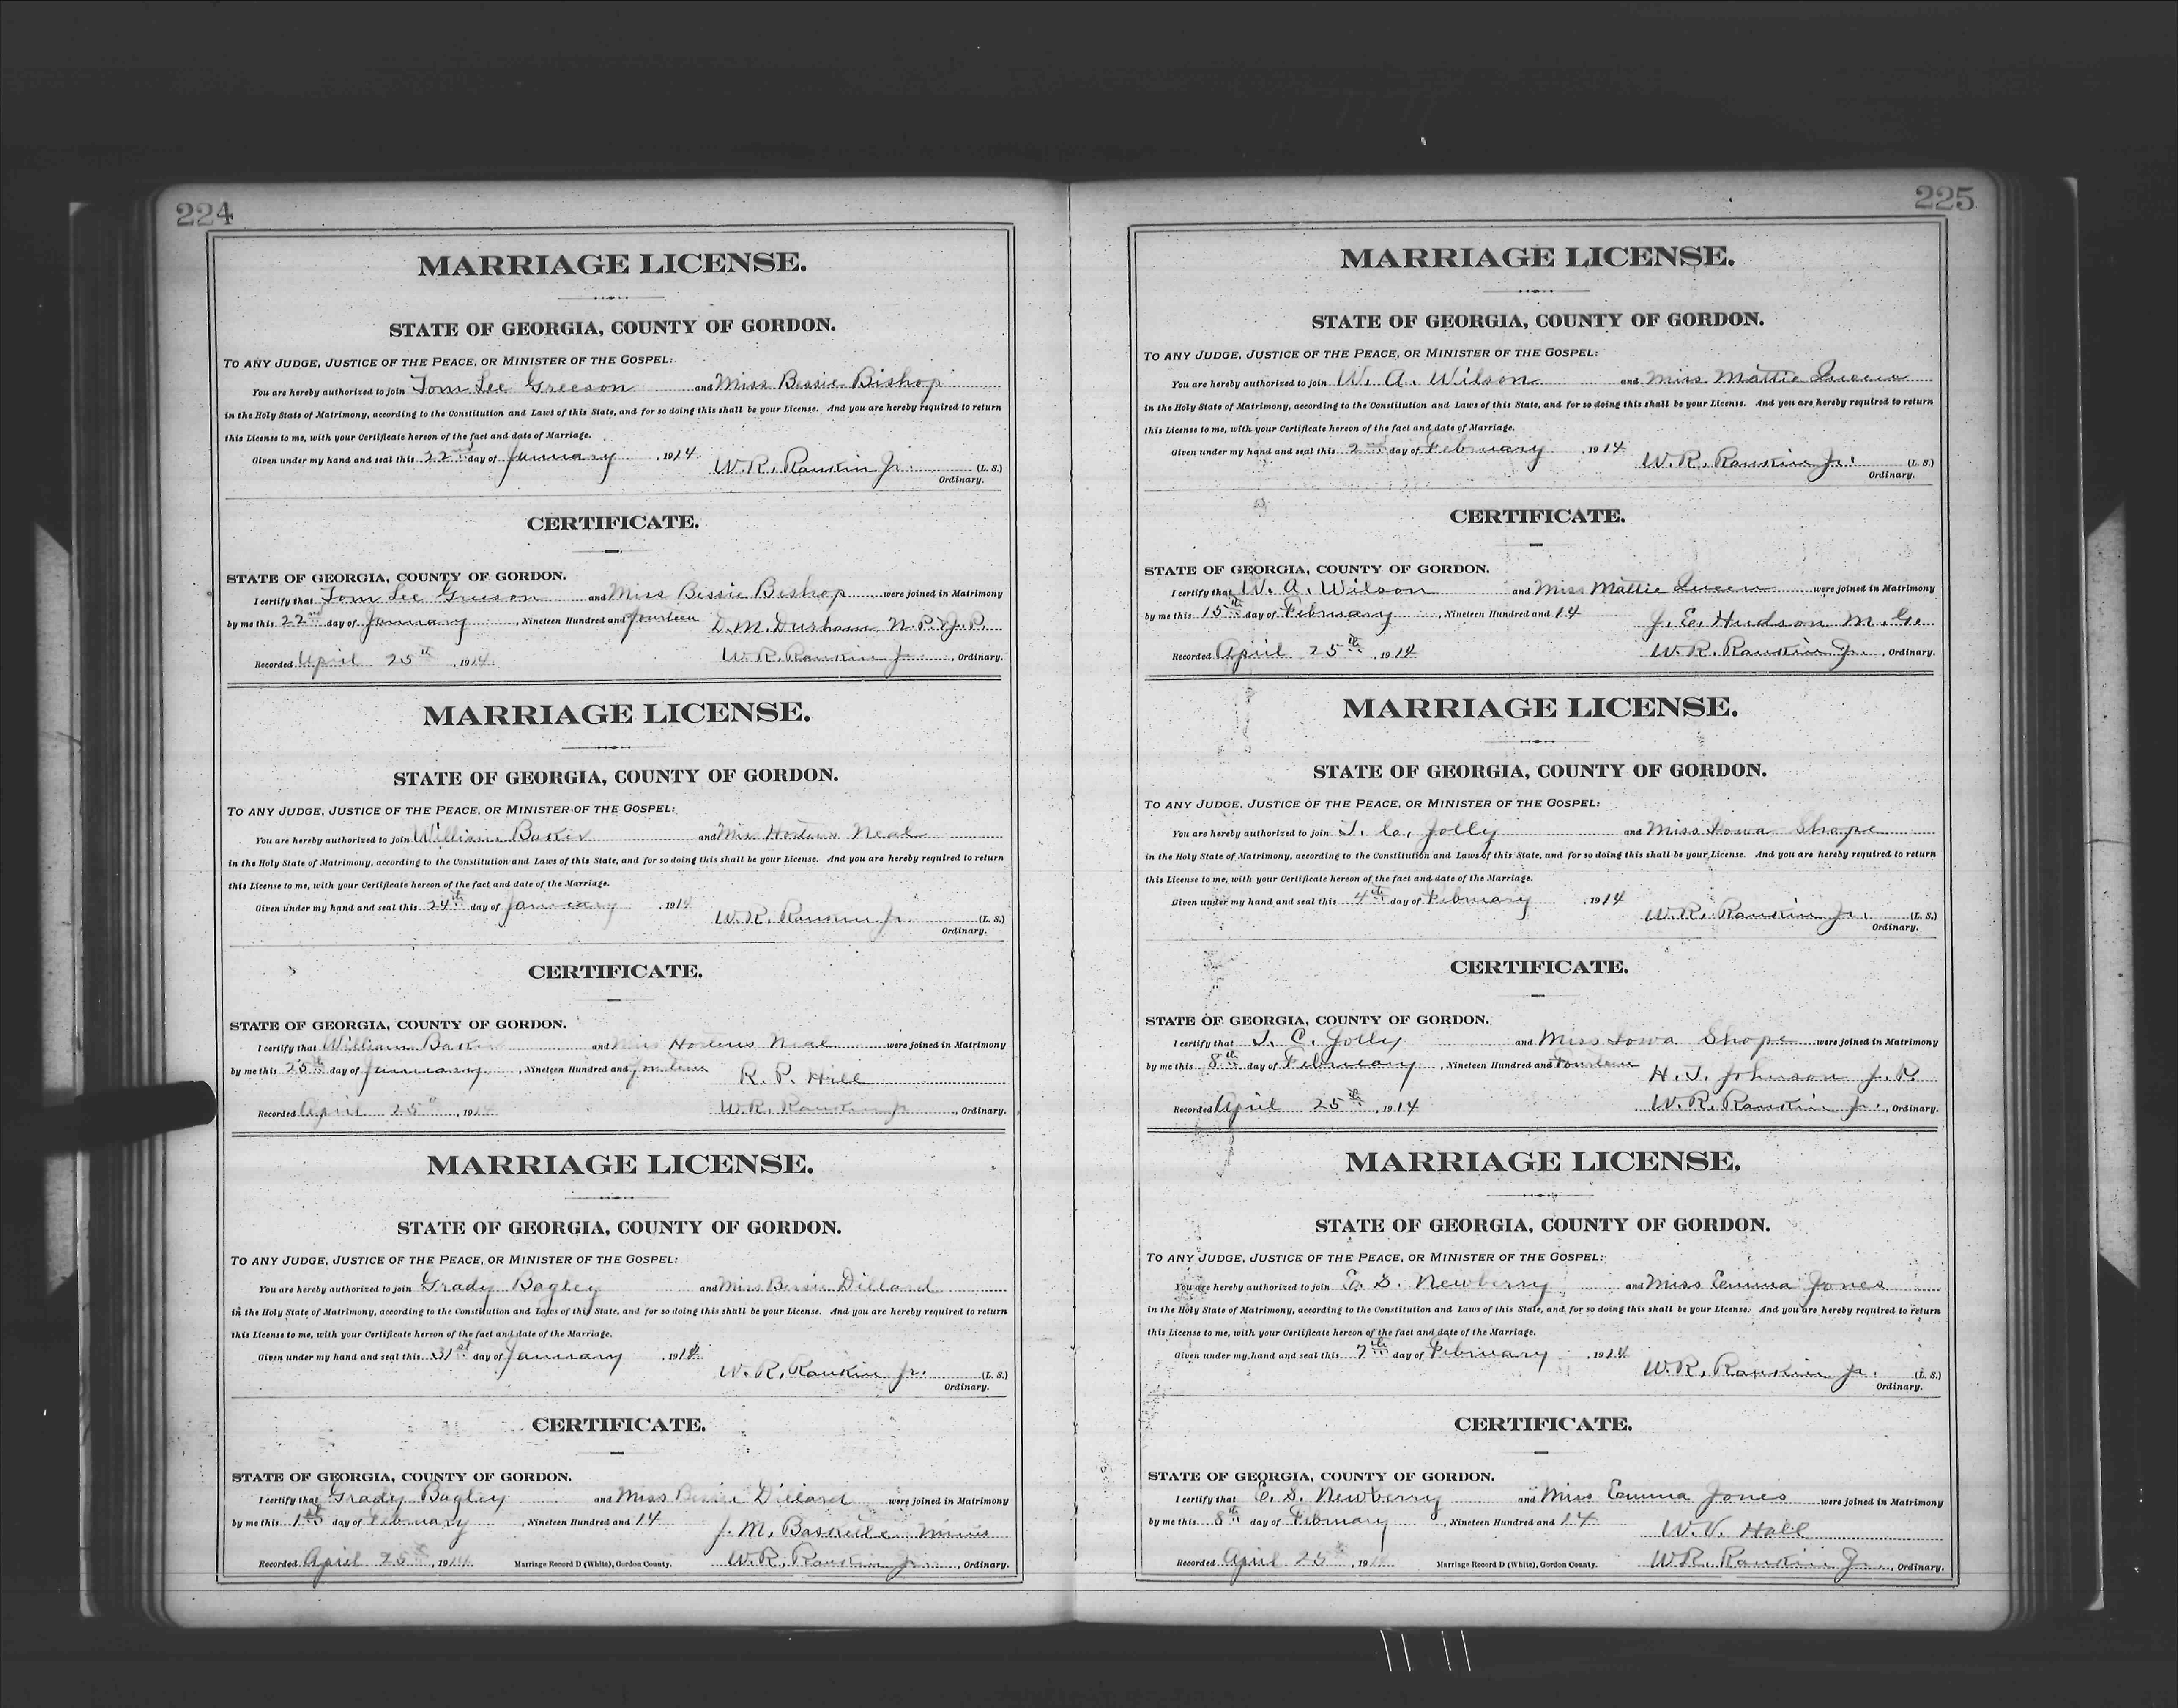 224
MARRIAGE LICENSE.
STATE OF GEORGIA, COUNTY OF GORDON.
TO ANY JUDGE, JUSTICE OF THE PEACE, OR MINISTER OF THE GOSPEL:
You are hereby authorized to join Tom Lee Greeson and Miss Bessie Bishop
in the Holy State of Matrimony, according to the Constitution and Laws of this State, and for so doing this shall be your License. And you are hereby required to return
this License to me, with your Certificate hereon of the fact and date of Marriage.
Given under my hand and seal this 22nd day of January, 1914
W.R. Rankin Jr. (L. S.)
Ordinary.
CERTIFICATE.
STATE OF GEORGIA, COUNTY OF GORDON.
I certify that Tom Lee Greeson and Miss Bessie Bishop were joined in Matrimony
by me this 22nd day of January, Nineteen Hundred and fourteen D. M. Durham, N.P.&J.P.
Recorded April 25th, 1914 W.R. Rankin Jr., Ordinary.
MARRIAGE LICENSE.
STATE OF GEORGIA, COUNTY OF GORDON.
TO ANY JUDGE, JUSTICE OF THE PEACE, OR MINISTER OF THE GOSPEL:
You are hereby authorized to join William Baker and Miss Neal
in the Holy State of Matrimony, according to the Constitution and Laws of this State, and for so doing this shall be your License. And you are hereby required to return
this License to me, with your Certificate hereon of the fact and date of the Marriage.
Given under my hand and seal this 24th day of January, 1914
W.R. Rankin Jr. (L. S.)
Ordinary.
CERTIFICATE.
STATE OF GEORGIA, COUNTY OF GORDON.
I certify that William Baker and Miss Neal were joined in Matrimony
by me this 25th day of January, Nineteen Hundred and fourteen R. P. Hill
Recorded April 25th, 1914 W.R. Rankin Jr., Ordinary.
MARRIAGE LICENSE.
STATE OF GEORGIA, COUNTY OF GORDON.
TO ANY JUDGE, JUSTICE OF THE PEACE, OR MINISTER OF THE GOSPEL:
You are hereby authorized to join Grady Bagley and Miss Bessie Dillard
in the Holy State of Matrimony, according to the Constitution and Laws of this State, and for so doing this shall be your License. And you are hereby required to return
this License to me, with your Certificate hereon of the fact and date of the Marriage.
Given under my hand and seal this 31st day of January, 1914
W. R. Rankin Jr. (L. S.)
Ordinary.
CERTIFICATE.
STATE OF GEORGIA, COUNTY OF GORDON.
I certify that Grady Bagley and Miss Bessie Dillard were joined in Matrimony
by me this 1st day of February, Nineteen Hundred and 14 J. M. Barnette
Recorded April 25th, 1914 Marriage Record D (White), Gordon County. W.R. Rankin Jr., Ordinary.
225
MARRIAGE LICENSE.
STATE OF GEORGIA, COUNTY OF GORDON.
TO ANY JUDGE, JUSTICE OF THE PEACE, OR MINISTER OF THE GOSPEL:
You are hereby authorized to join W. A. Wilson and Miss Mattie Queen
in the Holy State of Matrimony, according to the Constitution and Laws of this State, and for so doing this shall be your License. And you are hereby required to return
this License to me, with your Certificate hereon of the fact and date of Marriage.
Given under my hand and seal this 2nd day of February, 1914
W.R. Rankin Jr. (L. S.)
Ordinary.
CERTIFICATE.
STATE OF GEORGIA, COUNTY OF GORDON.
I certify that W. A. Wilson and Miss Mattie Queen were joined in Matrimony
by me this 15th day of February, Nineteen Hundred and 14 J. E. Hudson M. G.
Recorded April 25th, 1914 W.R. Rankin Jr., Ordinary.
MARRIAGE LICENSE.
STATE OF GEORGIA, COUNTY OF GORDON.
TO ANY JUDGE, JUSTICE OF THE PEACE, OR MINISTER OF THE GOSPEL:
You are hereby authorized to join T. C. Jolly and Miss Iowa Shope
in the Holy State of Matrimony, according to the Constitution and Laws of this State, and for so doing this shall be your License. And you are hereby required to return
this License to me, with your Certificate hereon of the fact and date of the Marriage.
Given under my hand and seal this 4th day of February, 1914
W.R. Rankin Jr. (L. S.)
Ordinary.
CERTIFICATE.
STATE OF GEORGIA, COUNTY OF GORDON.
I certify that T. C. Jolly and Miss Iowa Shope were joined in Matrimony
by me this 8th day of February, Nineteen Hundred and Fourteen H. T. Johnson J. P.
Recorded April 25th, 1914 W.R. Rankin Jr., Ordinary.
MARRIAGE LICENSE.
STATE OF GEORGIA, COUNTY OF GORDON.
TO ANY JUDGE, JUSTICE OF THE PEACE, OR MINISTER OF THE GOSPEL:
You are hereby authorized to join E. S. Newberry and Miss Emma Jones
in the Holy State of Matrimony, according to the Constitution and Laws of this State, and for so doing this shall be your License. And you are hereby required to return
this License to me, with your Certificate hereon of the fact and date of the Marriage.
Given under my hand and seal this 7th day of February, 1914
W.R. Rankin Jr. (L. S.)
Ordinary.
CERTIFICATE.
STATE OF GEORGIA, COUNTY OF GORDON.
I certify that E. S. Newberry and Miss Emma Jones were joined in Matrimony
by me this 8th day of February, Nineteen Hundred and 14 W. V. Hall
Recorded April 25th, 1914 Marriage Record D (White), Gordon County. W.R. Rankin Jr., Ordinary.